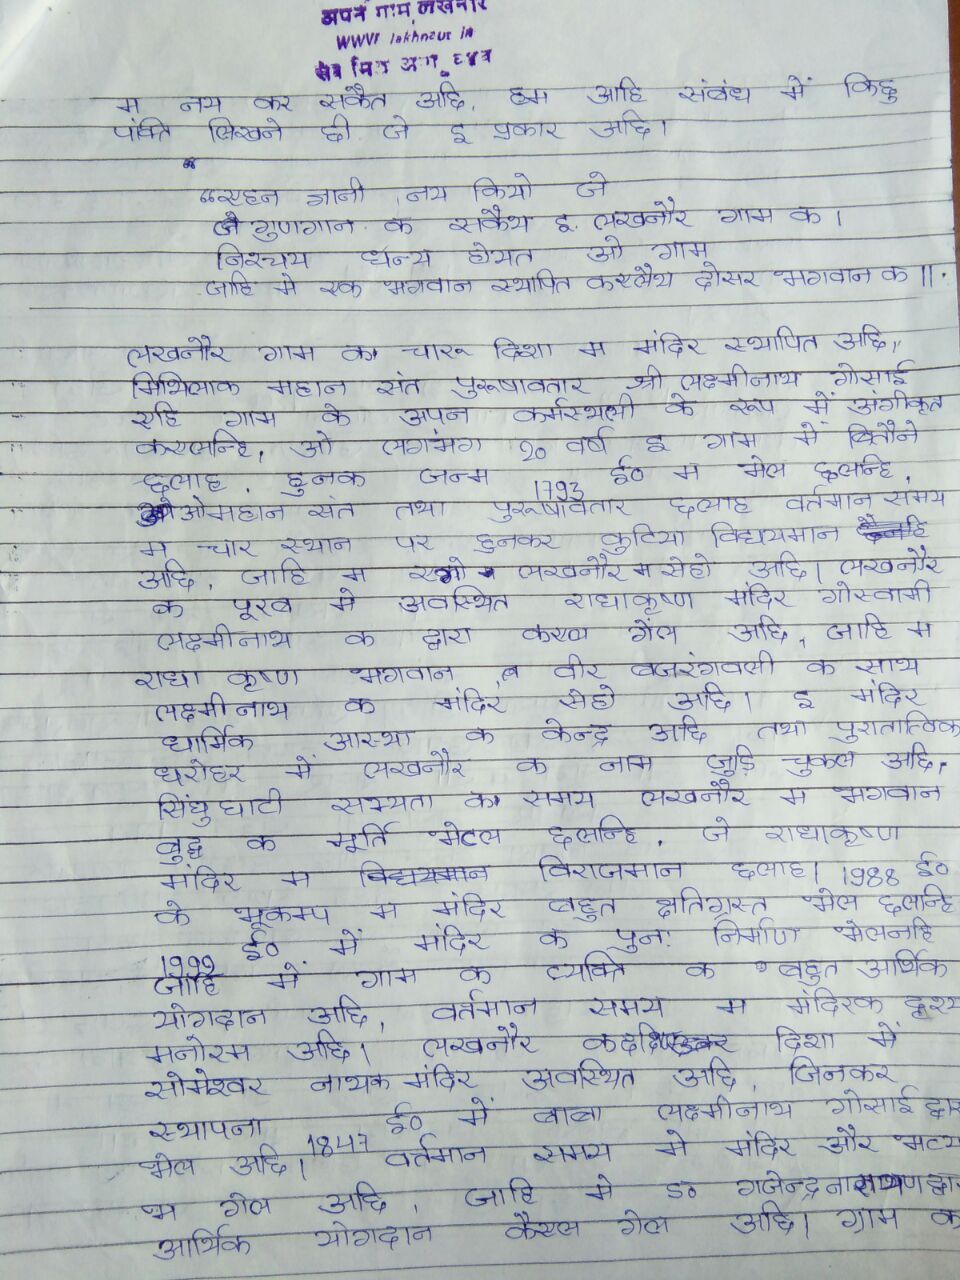 अपन गाम लखनौर
www lakhnaur in
म नय कर सकैत अछि, हम आहि संबंध में किछु
पंक्ति लिखने छी जे इ प्रकार अछि।
“एहन ज्ञानी नय कियो जे
जे गुणगान क सकैथ इ लखनौर गाम क।
निश्चय धन्य होयत ओ गाम
जाहि मे एक भगवान स्थापित करलैथ दोसर भगवान क ॥
लखनौर गाम क चारू दिशा म मंदिर स्थापित अछि।
मिथिलाक महान संत पुरूषावतार श्री लक्ष्मीनाथ गोसाई
एहि गाम के अपन कर्मस्थली के रूप में अंगीकृत
करलन्हि, ओ लगभग 20 वर्ष इ गाम में बितौने
छलाह. हुनक जन्म 1793 ई० म भेल छलन्हि,
ओ महान संत तथा पुरूषावतार छलाह वर्तमान समय
म चार स्थान पर हुनकर कुटिया विद्यमान
अछि, जाहि म लखनौर म सेहो अछि। लखनौर
क पूरब मे अवस्थित राधाकृष्ण मंदिर गोस्वामी
लक्ष्मीनाथ क द्वारा करल गेल अछि, जाहि म
राधा कृष्ण भगवान, व वीर बजरंगवली क साथ
लक्ष्मीनाथ क मंदिर सेहो अछि। इ मंदिर
धार्मिक आस्था क केन्द्र अछि तथा पुरातात्विक
धरोहर में लखनौर क नाम जुड़ि चुकल अछि,
सिंधु घाटी सभ्यता क समय लखनौर म भगवान
बुद्ध क मूर्ति भेटल छलन्हि, जे राधाकृष्ण
मंदिर म विराजमान छलाह। 1988 ई०
के भूकम्प म मंदिर बहुत क्षतिग्रस्त भेल छलन्हि
1999 ई० में मंदिर क पुनः निर्माण भेलनहि
जाहि में गाम क व्यक्ति क बहुत आर्थिक
योगदान अछि, वर्तमान समय म मंदिरक दृश्य
मनोरम अछि। लखनौर क दिशा में
सोमेश्वर नाथक मंदिर अवस्थित अछि, जिनकर
स्थापना 1847 ई० में बाबा लक्ष्मीनाथ गोसाई द्वारा
भेल अछि। वर्तमान समय मे मंदिर और भव्य
भ गेल अछि, जाहि मे डा० गजेन्द्र नारायण द्वारा
आर्थिक योगदान कैएल गेल अछि। ग्राम क